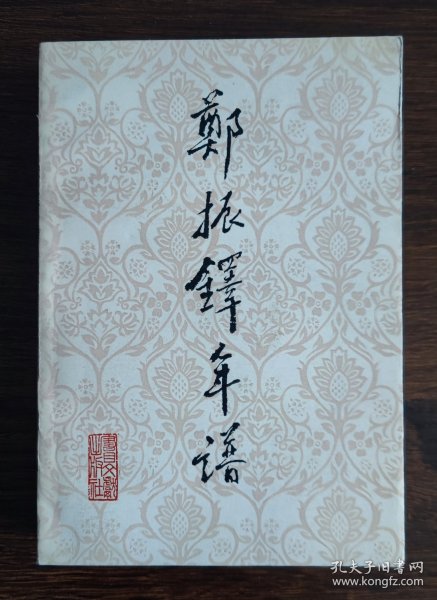 鄭振鐸年譜
書目文獻
出版社
孔夫子旧书网
www.kongfz.com